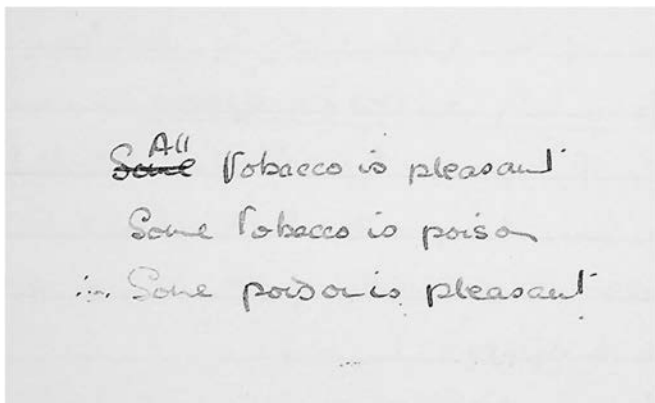 All
Some Tobacco is pleasant
Some Tobacco is poison
∴ Some poison is pleasant